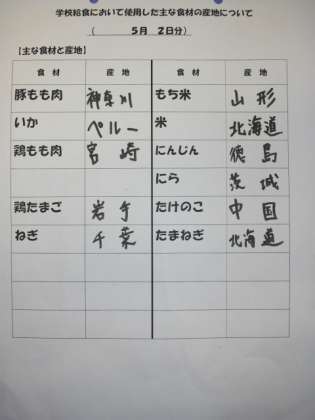 学校給食において使用した主な食材の産地について
（　　　　5月　2日分）
【主な食材と産地】
食　材　産　地　食　材　産　地
豚もも肉　神奈川　もち米　山形
いか　ペルー　米　北海道
鶏もも肉　宮崎　にんじん　徳島
にら　茨城
鶏たまご　岩手　たけのこ　中国
ねぎ　千葉　たまねぎ　北海道